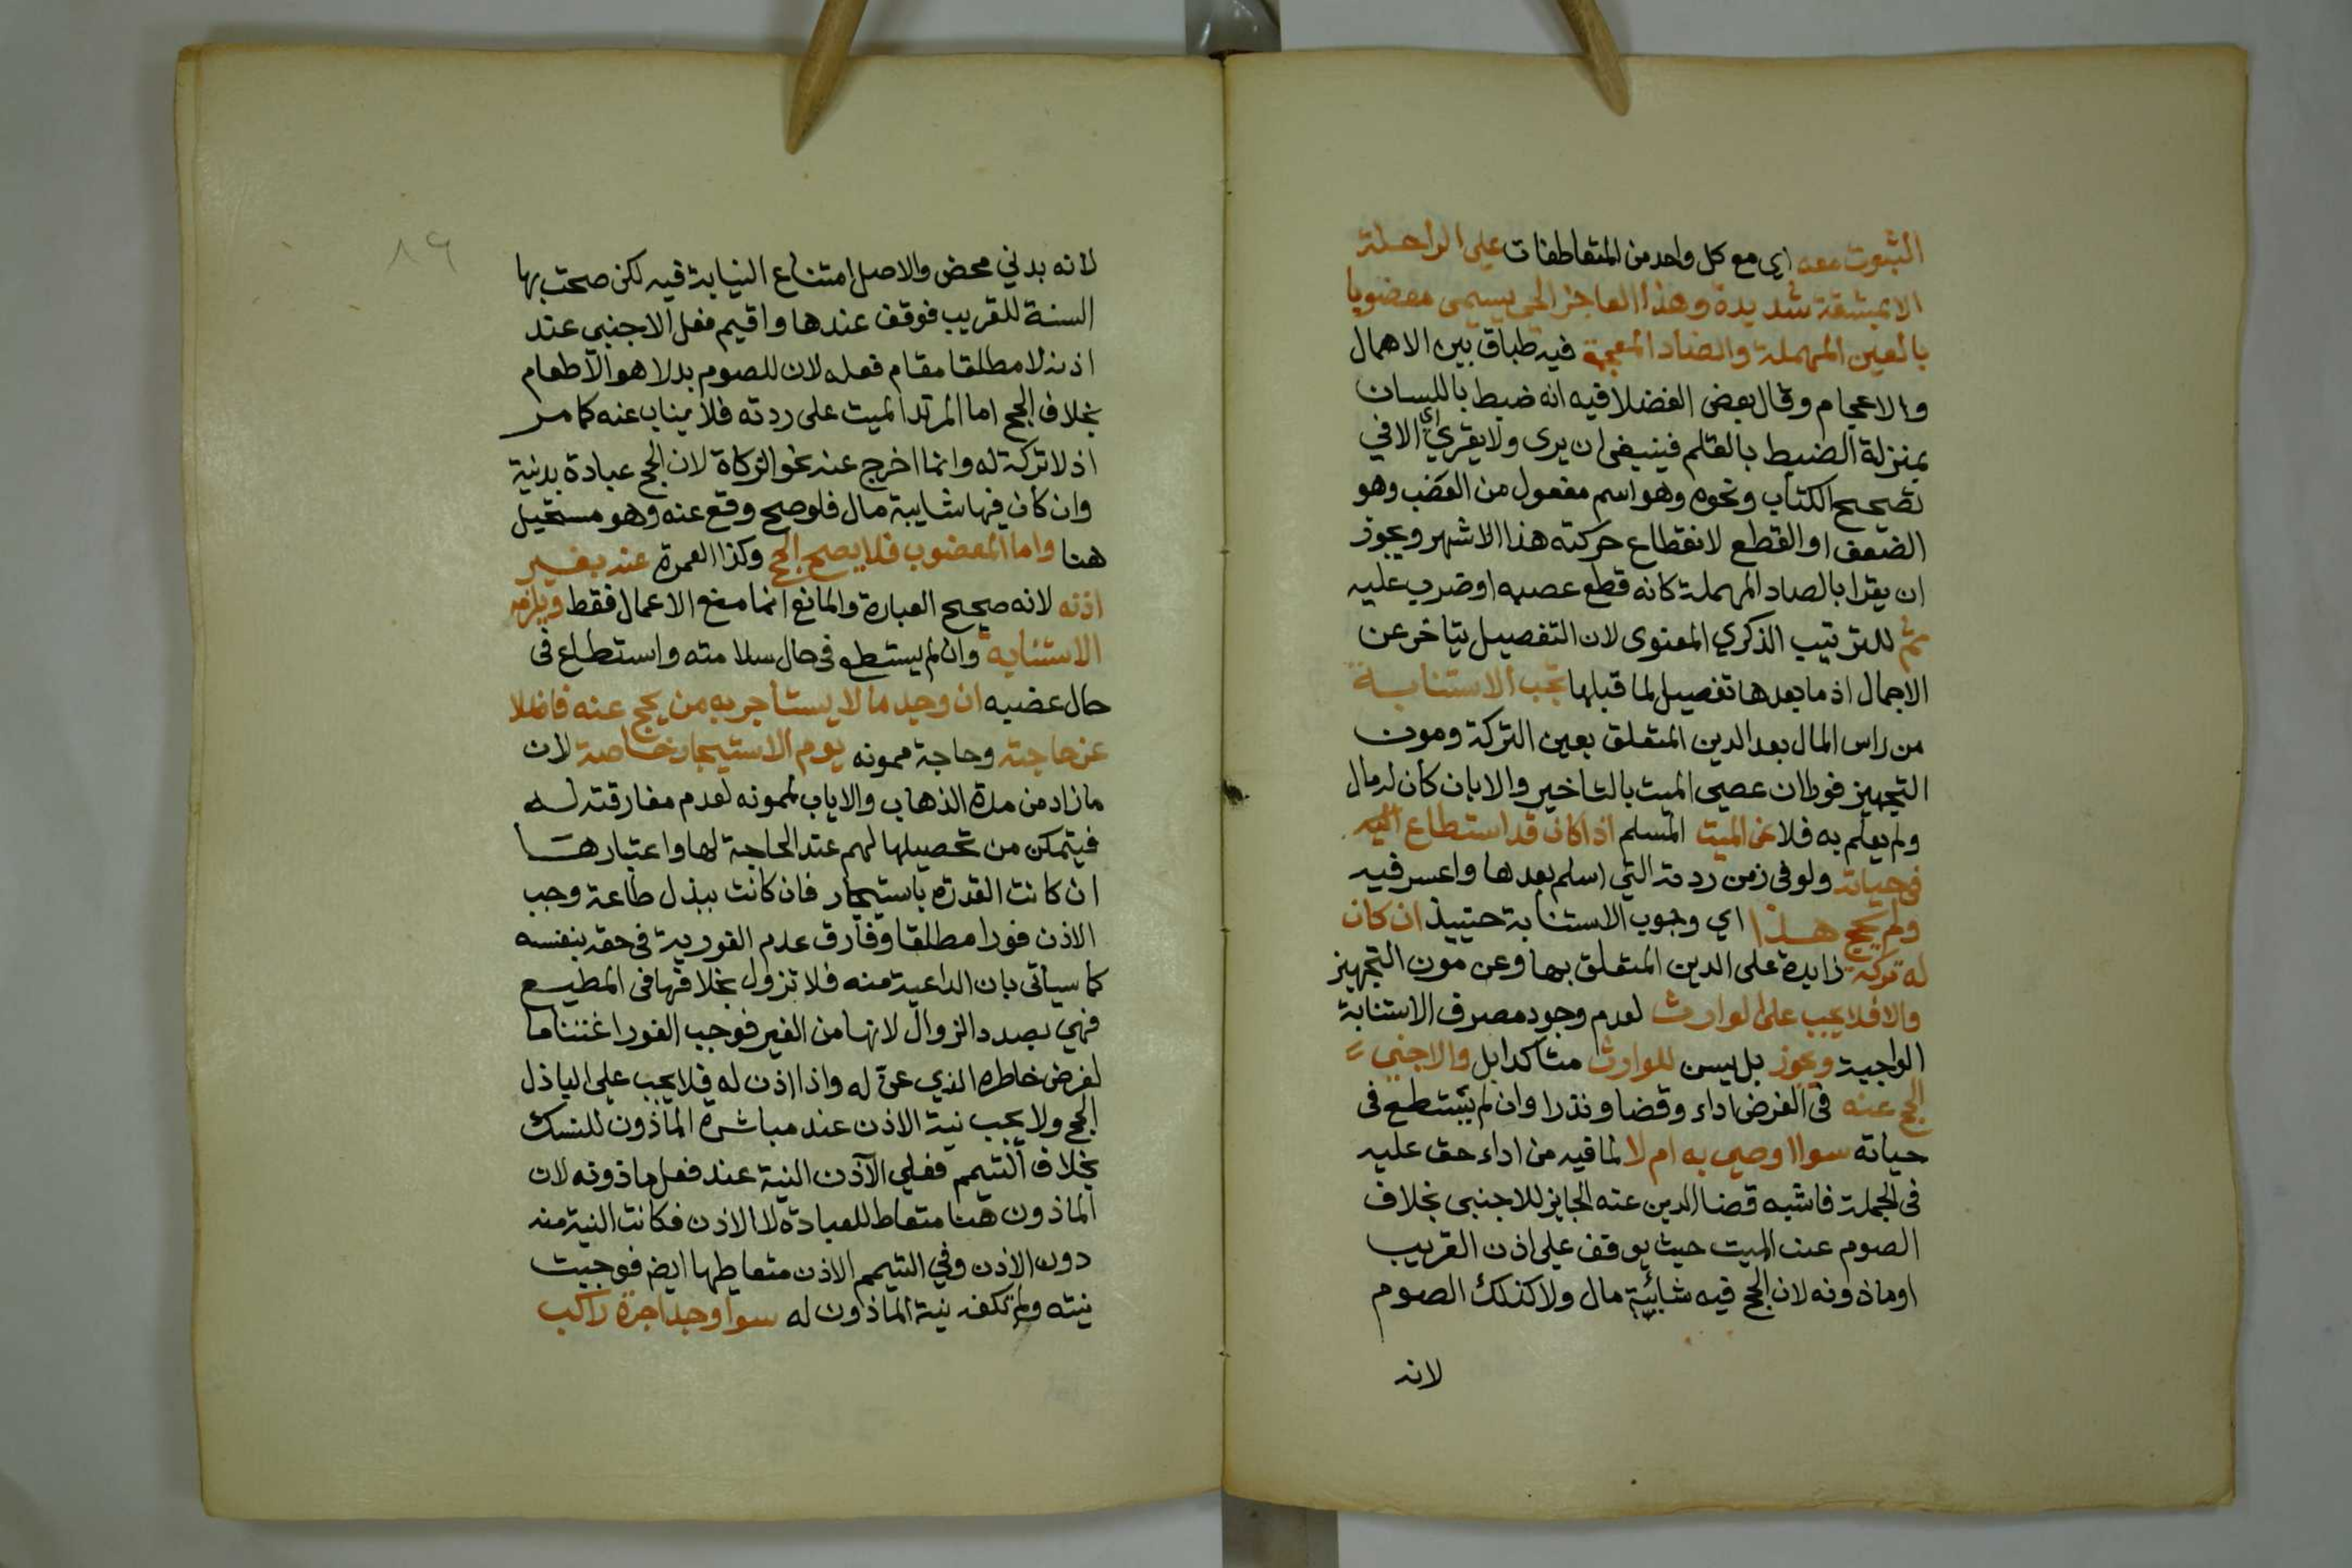 الثبوت معه اي مع كل واحد من المتعاطفات على الراحلة
الا بمشقة شديدة وهذا العاجز الحي يسمى معضوبا
بالعين المهملة والضاد المعجمة فيه طباق بين الاهمال
والاعجام وقال بعض الفضلا فيه انه ضبط باللسان
بمنزلة الضبط بالقلم فينبغي ان يرى ولا يقري اي الا في
تصحيح الكتاب ونحوه وهو اسم مفعول من العضب وهو
الضعف او القطع لانقطاع حركته هذا الاشهر ويجوز
ان يقرا بالصاد المهملة كانه قطع عصبه او ضرب عليه
ثم للترتيب الذكري المعنوى لان التفصيل يتاخر عن
الاجمال اذ ما بعدها تفصيل لما قبلها تجب الاستنابة
من راس المال بعد الدين المتعلق بعين التركة ومون
التجهيز فورا ان عصى الميت بالتاخير والا بان كان له مال
ولم يعلم به فلا عن الميت المسلم اذا كان قد استطاع اليه
في حياته ولو في زمن ردته التي اسلم بعدها واعسر فيه
ولم يحج هذا اي وجوب الاستنابة حينيذ ان كان
له تركة زايدة على الدين المتعلق بها وعن مون التجهيز
والا فلا يجب على الوارث لعدم وجود مصرف الاستنابة
الواجبة ويجوز بل يسن للوارث متاكدا بل والاجنبي
الحج عنه في الفرض اداء وقضا ونذرا وان لم يستطع في
حياته سوا اوصى به ام لا لما فيه من اداء حق عليه
في الجملة فاشبه قضا الدين عنه الجايز للاجنبي بخلاف
الصوم عن الميت حيث يوقف على اذن القريب
او ماذونه لان الحج فيه شائبة مال ولا كذلك الصوم
لانه
٨٩
لانه بدني محض والاصل امتناع النيابة فيه لكن صحت بها
السنة للقريب فوقف عندها واقيم فعل الاجنبي عند
اذنه لا مطلقا مقام فعله لان للصوم بدلا هو الاطعام
بخلاف الحج اما المرتد الميت على ردته فلا يناب عنه كما مر
اذ لا تركة له وانما اخرج عنه نحو الزكاة لان الحج عبادة بدنية
وان كان فيها شايبة مال فلو صح وقع عنه وهو مستحيل
هنا واما المعضوب فلا يصح الحج وكذا العمرة عنه بغير
اذنه لانه صحيح العبارة والمانع انما منع الاعمال فقط ويلزمه
الاستنابة وان لم يستطع في حال سلامته واستطاع في
حال عضبه ان وجد مالا يستاجر به من يحج عنه فاضلا
عن حاجته وحاجة ممونه يوم الاستيجار خاصة لان
ما زاد من مدة الذهاب والاياب لممونه لعدم مفارقته له
فيتمكن من تحصيلها لهم عند الحاجة لها واعتبارها
ان كانت القدرة باستيجار فان كانت ببذل طاعة وجب
الاذن فورا مطلقا وفارق عدم الفورية في حقه بنفسه
كما سيأتى بان الداعية منه فلا تزول بخلافها في المطيع
فهي بصدد الزوال لانها من الغير فوجب الفور اغتناما
لفرض خاطره الذي عن له واذا اذن له فلا يجب على الباذل
الحج ولا يجب نية الاذن عند مباشرة الماذون للنسك
بخلاف التيمم فعلى الآذن النية عند فعل ماذونه لان
الماذون هنا متعاط للعبادة لا الاذن فكانت النية منه
دون الاذن وفي التيمم الاذن متعاطيها ايضا فوجبت
نيته ولم تكف نية الماذون له سوا وجد اجرة راكب